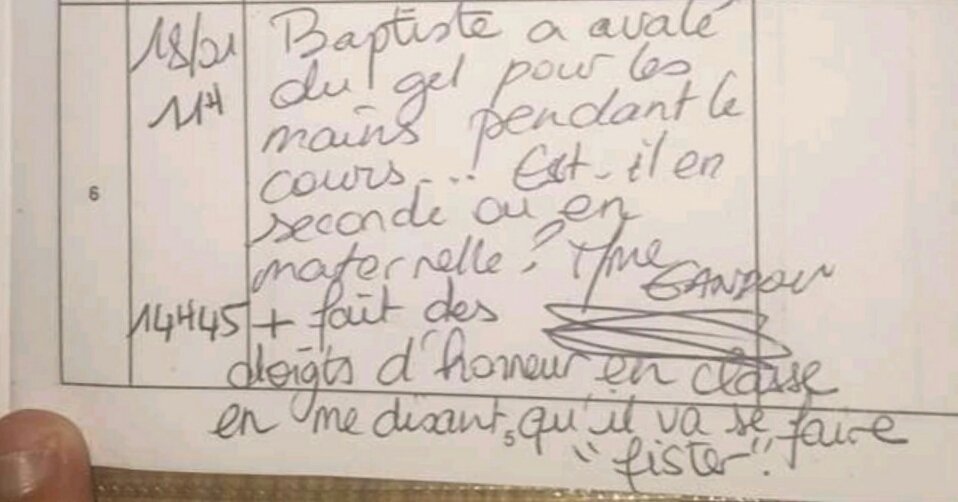 18/01 Baptiste a avalé
11H du gel pour les
mains pendant le
cours... Est-il en
6 seconde ou en
maternelle? Mme
GANDON
14H45 + fait des
doigts d'honneur en classe
en me disant, qu'il va se faire
"fister".